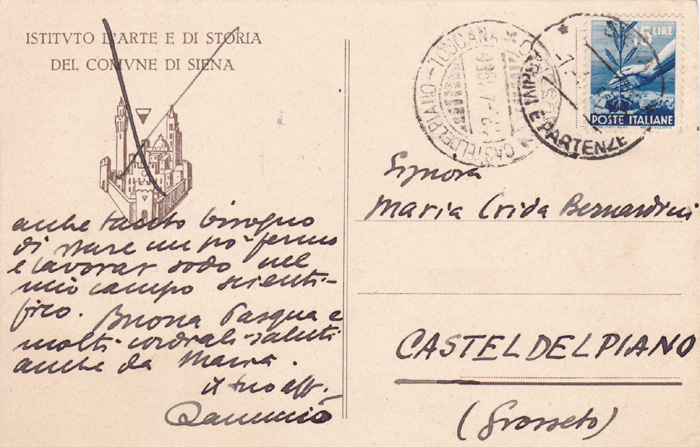 ISTITVTO D'ARTE E DI STORIA
DEL COMVNE DI SIENA
anche tanto bisogno
di stare un po' fermo
e lavorar sodo nel
mio campo scienti-
fico. Buona Pasqua e
molti cordiali saluti
anche da Maria.
il tuo aff.
CASTELDELPIANO - TOSCANA
ARRIVI E PARTENZE
15 LIRE
POSTE ITALIANE
Signora
Maria Crida Bernardini
CASTELDELPIANO
(Grosseto)